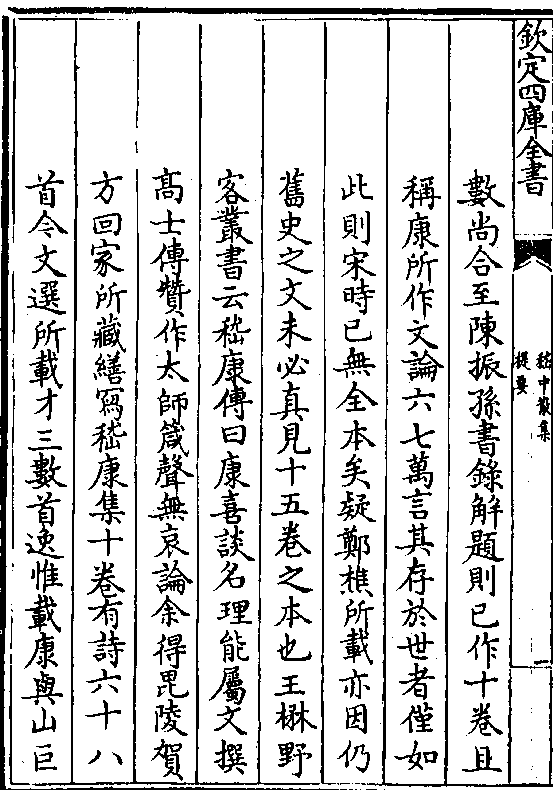 欽定四庫全書
嵇中散集
提要
一
數尚合至陳振孫書錄解題則已作十卷且
稱康所作文論六七萬言其存於世者僅如
此則宋時已無全本矣疑鄭樵所載亦因仍
舊史之文未必真見十五卷之本也王楙野
客叢書云嵇康傳曰康喜談名理能屬文撰
髙士傳贊作太師箴聲無哀論余得毘陵賀
方回家所藏繕寫嵇康集十卷有詩六十八
首今文選所載才三數首逸惟載康與山巨